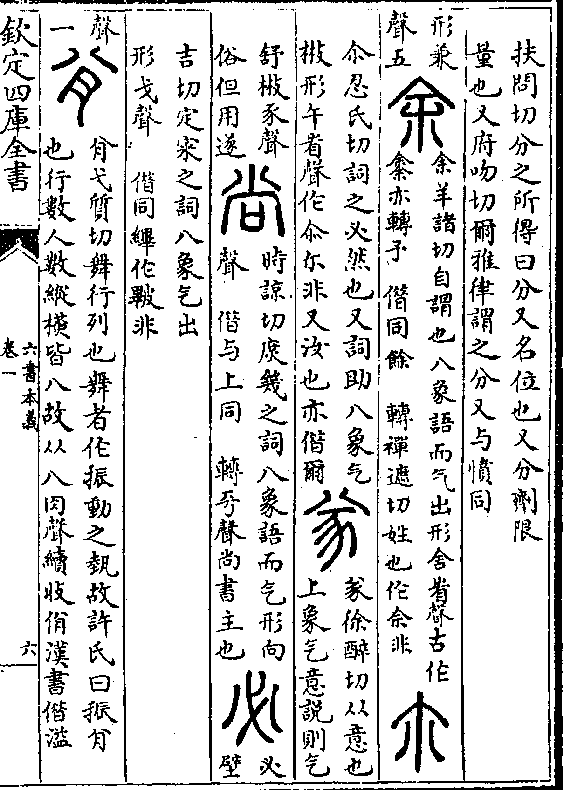 扶問切分之所得曰分又名位也又分劑限
量也又府吻切爾雅律謂之分又与憤同
形兼
聲五
余
余羊諸切自謂也八象語而气出形舍省聲古作
亦轉予 借同餘 轉禪遮切姓也作佘非
尒
尒忍氏切詞之必然也又詞助八象气
㪚形午省聲作尒尓非又汝也亦借爾
㒸
㒸徐醉切从意也
上象气意説則气
舒㪚豕聲
俗但用遂
尚
時諒切庶幾之詞八象語而气形向
聲 借与上同 轉平聲尚書主也
必
必
壁
吉切定宷之詞八象气出
形戈聲 借同縪作非
聲
一
㕣
弋質切舞行列也舞者作振動之埶故許氏曰振
也行數人數縱橫皆八故从八肉聲續收佾漢書借溢
欽定四庫全書
六書本義
卷一
六